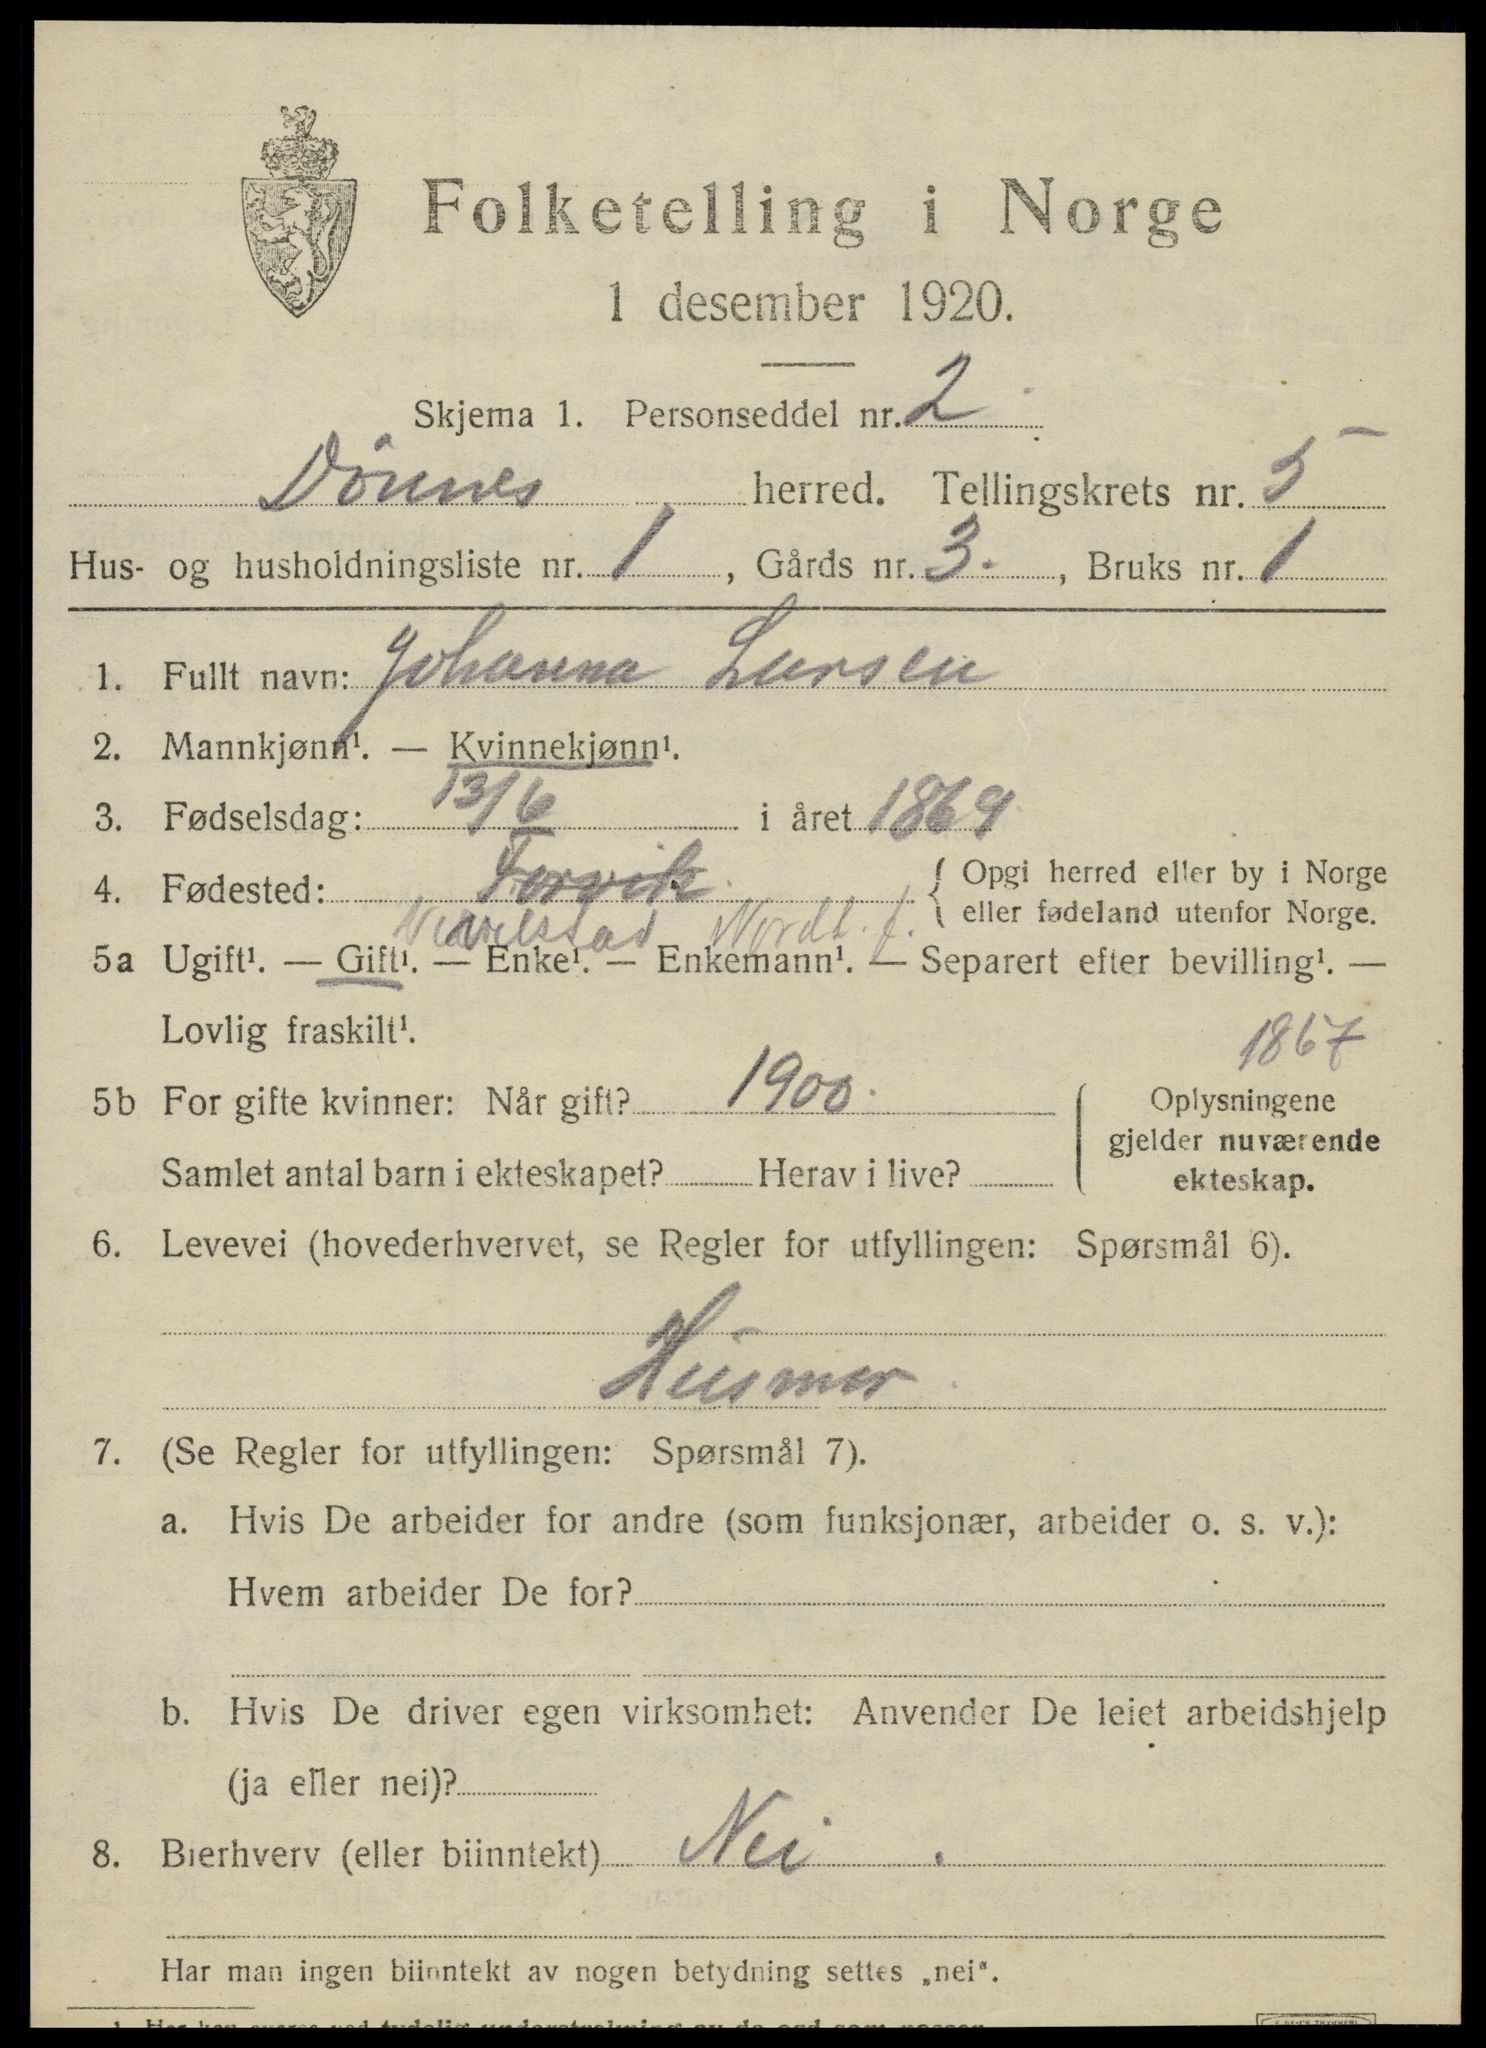 Folketelling i Norge
1 desember 1920.
Skjema 1. Personseddel nr. 2
Dönnes herred. Tellingskrets nr. 5
Hus- og husholdningsliste nr. 1, Gårds nr. 3., Bruks nr. 1
1. Fullt navn: Johanna Larsen
2. Mannkjønn¹. — Kvinnekjønn¹.
3. Fødselsdag: 13/6 i året 1869
4. Fødested: Forvik { Opgi herred eller by i Norge
eller fødeland utenfor Norge.
Nordl. f.
5a Ugift¹. — Gift¹. — Enke¹. — Enkemann¹. — Separert efter bevilling¹. —
Lovlig fraskilt¹.
1867
5b For gifte kvinner: Når gift? 1900. { Oplysningene
gjelder nuværende
Samlet antal barn i ekteskapet? Herav i live? ekteskap.
6. Levevei (hovederhvervet, se Regler for utfyllingen: Spørsmål 6).
Husmor
7. (Se Regler for utfyllingen: Spørsmål 7).
a. Hvis De arbeider for andre (som funksjonær, arbeider o. s. v.):
Hvem arbeider De for?
b. Hvis De driver egen virksomhet: Anvender De leiet arbeidshjelp
(ja eller nei)?
8. Bierhverv (eller biinntekt) Nei.
Har man ingen biinntekt av nogen betydning settes „nei“.